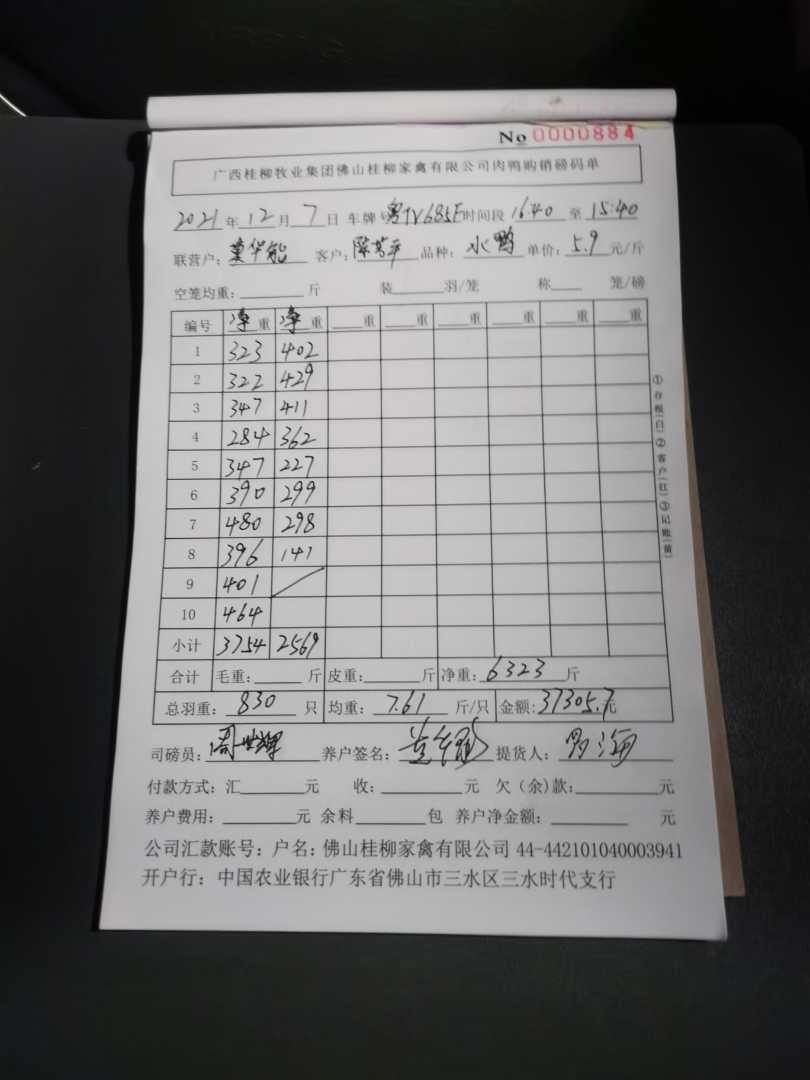 No 0000884
广西桂柳牧业集团佛山桂柳家禽有限公司肉鸭购销磅码单
2021年12月7日 车牌号粤TV685F时间段16:40至15:40
联营户: 客户: 品种:水鸭 单价:5.9元/斤
空笼均重:斤 装羽/笼 称笼/磅
编号 净重 净重 重 重 重 重 重 重
1 323 402
2 322 429
3 347 411
4 284 362
5 347 227
6 390 299
7 480 298
8 396 141
9 401
10 464
小计 3754 2569
合计 毛重:斤 皮重:斤 净重:6323斤
总羽重:830只 均重:7.61斤/只 金额:37305.7元
司磅员:周世辉 养户签名: 提货人:
付款方式:汇元 收:元 欠(余)款:元
养户费用:元 余料包 养户净金额:元
公司汇款账号:户名:佛山桂柳家禽有限公司 44-442101040003941
开户行:中国农业银行广东省佛山市三水区三水时代支行
①存根(白)②客户(红)③记账(黄)